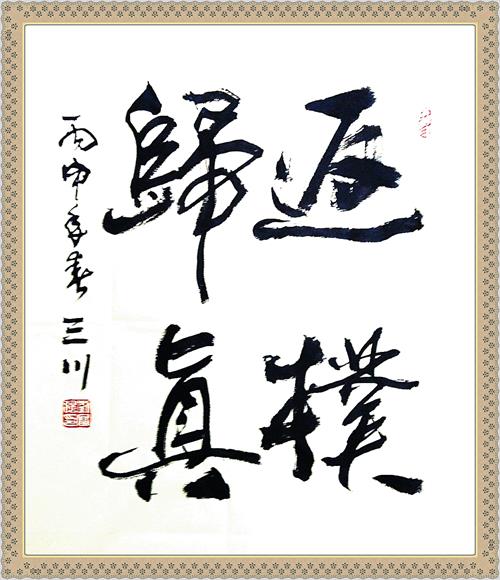 返樸
歸眞
丙申年春 三川